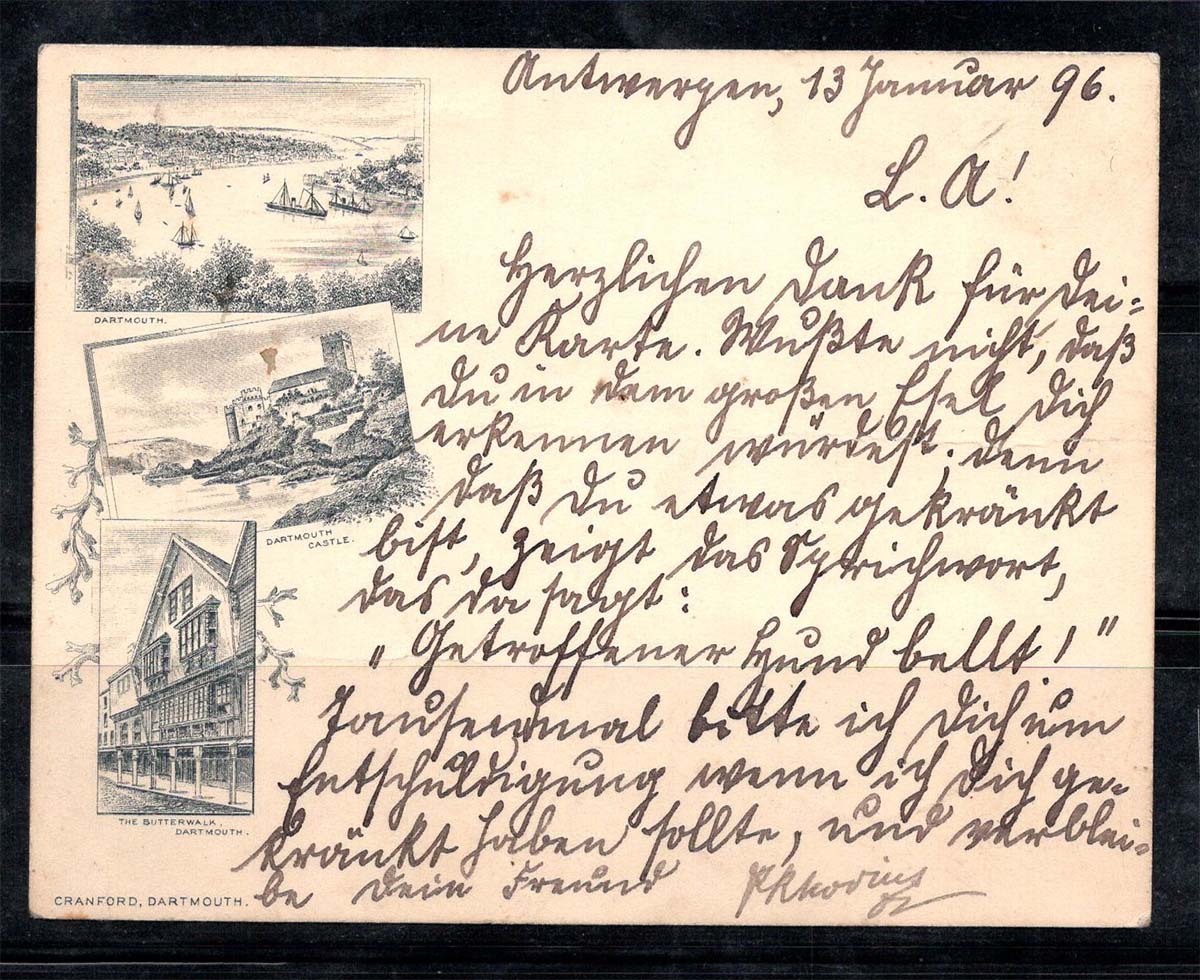 Antwerpen, 13 Januar 96.
L. A!
Herzlichen Dank für Dei-
ne Karte. Wußte nicht, daß
Du in dem großen Esel Dich
erkennen würdest; denn
daß Du etwas gekränkt
bist, zeigt das Sprichwort,
das da sagt:
„Getroffener Hund bellt!"
Tausendmal bitte ich Dich um
Entschuldigung wenn ich Dich ge-
kränkt haben sollte, und verblei-
be Dein Freund
DARTMOUTH.
DARTMOUTH
CASTLE.
THE BUTTERWALK,
DARTMOUTH.
CRANFORD, DARTMOUTH.